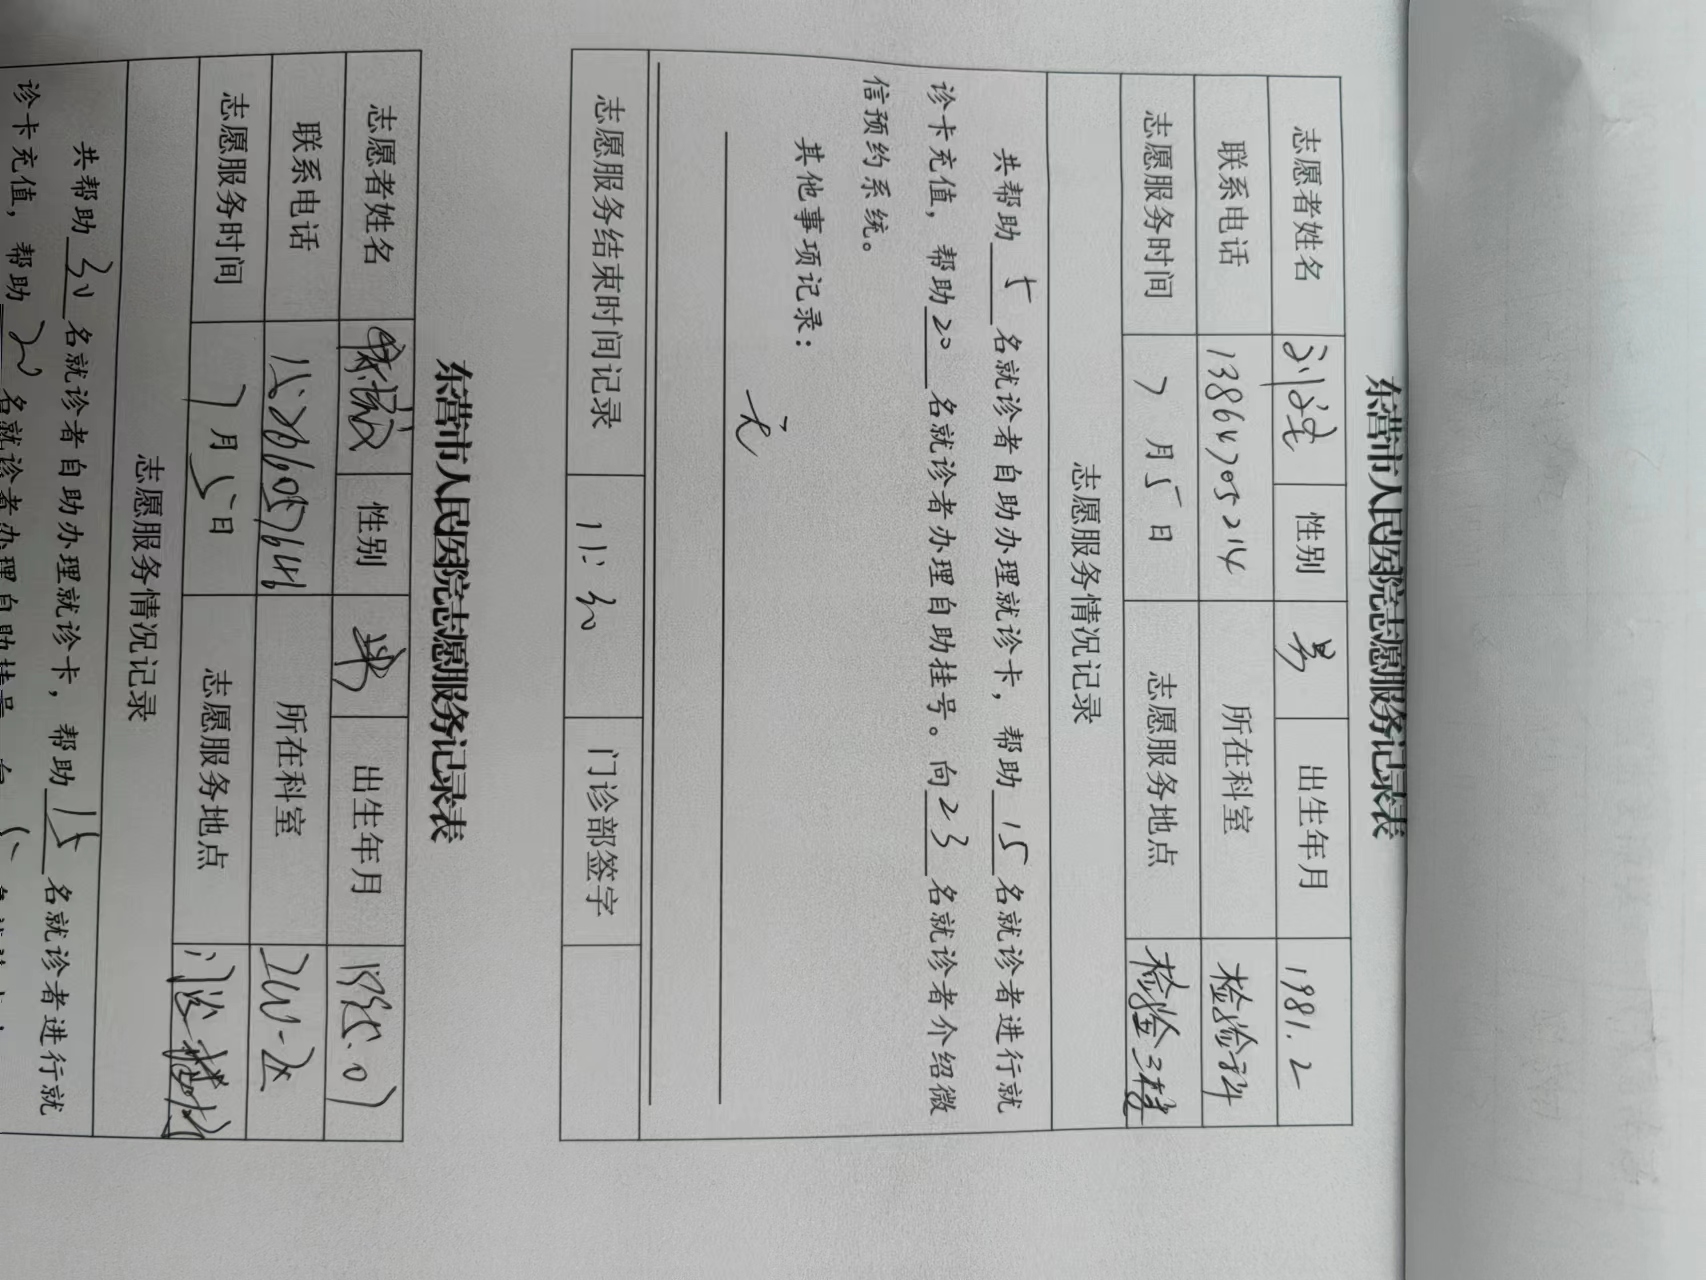 东营市人民医院志愿服务记录表
志愿者姓名 刘 性别 男 出生年月 1981.2
联系电话 13864705214 所在科室 检验科
志愿服务时间 7月5日 志愿服务地点 检验三楼
志愿服务情况记录
共帮助 5 名就诊者自助办理就诊卡，帮助 15 名就诊者进行就
诊卡充值，帮助 20 名就诊者办理自助挂号。向 23 名就诊者介绍微
信预约系统。
其他事项记录：
无
志愿服务结束时间记录 11:30 门诊部签字
东营市人民医院志愿服务记录表
志愿者姓名 性别 男 出生年月
联系电话 所在科室
志愿服务时间 7月5日 志愿服务地点 门诊
志愿服务情况记录
共帮助 30 名就诊者自助办理就诊卡，帮助 15 名就诊者进行就
诊卡充值，帮助 20 名就诊者办理自助挂号